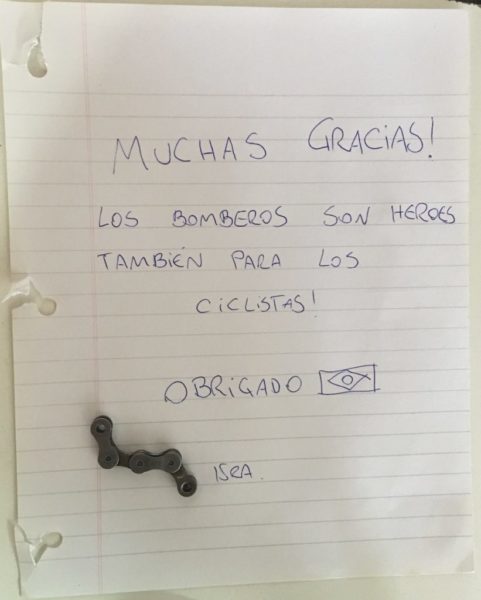 MUCHAS GRACIAS!
LOS BOMBEROS SON HEROES
TAMBIÉN PARA LOS
CICLISTAS!
OBRIGADO
ISRA.